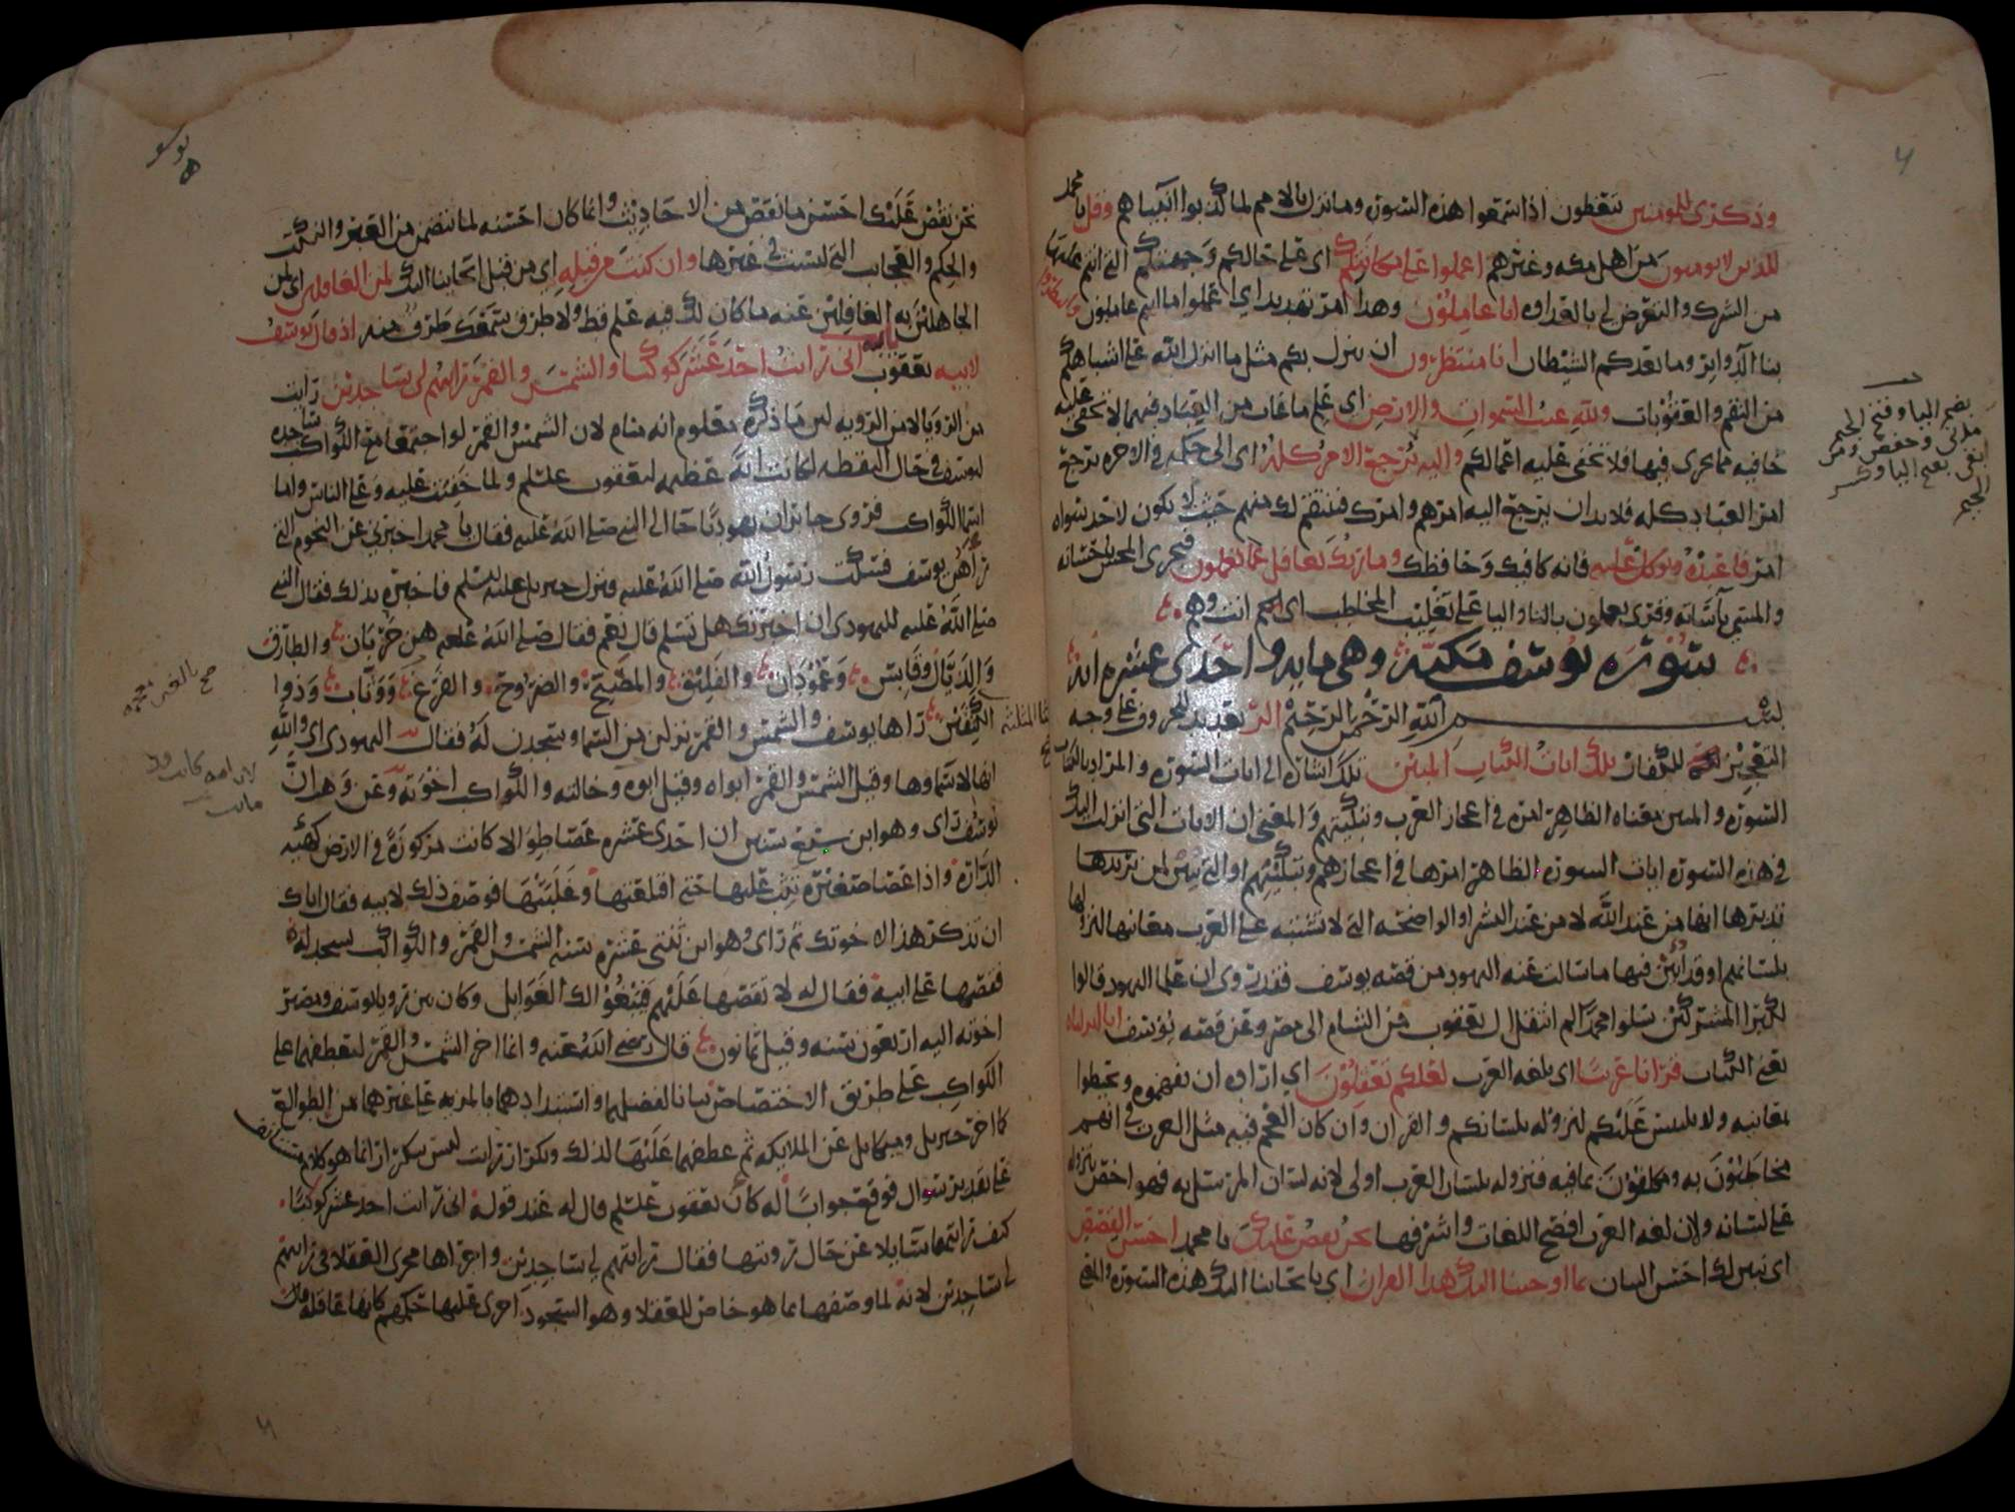 وذكرى للمومنين تتعظون اذا سمعوا هذه السورة وما نزل بالامم لما كذبوا انبياهم وقل يا محمد
للذين لا يومنون من اهل مكه وغيرهم اعملوا على مكانتكم اى على حالكم وجهتكم التى انتم عليها
من الشرك والتعرض لى بالعداوه انا عاملون وهذا امر تهديد اى اعملوا ما انتم عاملون وانتظروا
بنا الدواير وما يعدكم الشيطان انا منتظرون ان ينزل بكم مثل ما انزل الله على اشباهكم
من النقم والعقوبات ولله غيب السموات والارض اى علم ما غاب من العباد فيهما لا تخفى عليه
خافيه مما يجرى فيها فلا تخفى عليه اعمالكم واليه يرجع الامر كله اى الى حكمه فى الاخره يرجع
امر العباد كله فلا بد ان يرجع اليه امرهم وامرك فينتقم لك منهم حيث لا يكون لاحد سواه
امر فاعبده وتوكل عليه فانه كافيك وحافظك وما ربك بغافل عما تعملون فيجرى المحسن باحسانه
والمسى باساته وقرى يعملون بالتا واليا على تغليب المخاطب اى انت وهم
سورة يوسف مكية وهى مايه واحدى عشره ايه
بسم الله الرحمن الرحيم الر تعديد للحروف على وجه
التعجيز للكفار تلك ايات الكتاب المبين تلك اشارة الى ايات السورة والمراد بالكتاب
السورة والمبين معناه الظاهر امره فى اعجاز العرب وتبكيتهم والمعنى ان الايات التى انزلت اليك
فى هذه السورة ايات السورة الظاهر امرها فى اعجازهم وتبكيتهم او التى تبين لمن تدبرها
تدبرها انها من عند الله لا من عند البشر او الواضحه التى لا تشتبه على العرب معانيها لنزولها
بلسانهم او قد ابين فيها ما سالت عنه اليهود من قصه يوسف فقد روى ان علما اليهود قالوا
لكبرا المشركين سلوا محمدا لم انتقل ال يعقوب من الشام الى مصر وعن قصه يوسف انا انزلناه
يعنى الكتاب قرانا عربيا اى بلغه العرب لعلكم تعقلون اى اراده ان تفهموه وتحيطوا
بمعانيه ولا يلتبس عليكم لنزوله بلسانكم والقران وان كان العجم فيه مثل العرب فى انهم
مخاطبون به ومكلفون بما فيه فنزوله بلسان العرب اولى لانه لسان المرسل به فهو اخص بنزوله
على لسانه ولان لغه العرب افصح اللغات واشرفها نحن نقص عليك يا محمد احسن القصص
اى نبين لك احسن البيان بما اوحينا اليك هذا القران اى بايحاينا اليك هذه السورة والمعنى
بضم اليا وفتح الجيم
نحن نقص عليك احسن ما يقص من الاحاديث وانما كان احسنه لما تتضمن من العبر والنكت
والحكم والعجايب التى ليست فى غيرها وان كنت من قبله اى من قبل ايحاينا اليك لمن الغافلين اى لمن
الجاهلين به الغافلين عنه ما كان لك فيه علم قط ولا طرق سمعك طرف منه اذ قال يوسف
لابيه يعقوب يا ابت انى رايت احد عشر كوكبا والشمس والقمر رايتهم لى ساجدين رايت
من الرويا لا من الرويه لان ما ذكره معلوم انه منام لان الشمس والقمر لو اجتمعا مع الكواكب ساجده
ليوسف فى حال اليقظه لكانت اية عظيمه ليعقوب علسلم ولما خفيت عليه وعلى الناس واما
اسما الكواكب فروى جابر ان يهوديا جا الى النبى صلى الله عليه فقال يا محمد اخبرنى عن النجوم التى
راهن يوسف فسكت رسول الله صلى الله عليه ونزل جبريل عليه السلم فاخبره بذلك فقال النبى
صلى الله عليه لليهودى ان اخبرتك هل تسلم قال نعم فقال صلى الله عليه هن جربان والطارق
والذيال وقابس وعمودان والفليق والمصبح والضروح والفرغ ووثاب وذوا
الكتفين راها يوسف والشمس والقمر نزلن من السما وسجدن له فقال اليهودى اى والله
انها لاسماوها وقيل الشمس والقمر ابواه وقيل ابوه وخالته والكواكب اخوته وعن وهب ان
يوسف راى وهو ابن سبع سنين ان احدى عشره عصا طوالا كانت مركوزة فى الارض كهيه
الدارة واذا عصا صغيرة تثب عليها حتى اقتلعتها وغلبتها فوصف ذلك لابيه فقال اياك
ان تذكر هذا لاخوتك ثم راى وهو ابن ثنتى عشره سنه الشمس والقمر والكواكب تسجد له
فقصها على ابيه فقال له لا تقصها عليهم فيبغوا لك الغوايل وكان بين رويا يوسف ومصير
اخوته اليه اربعون سنه وقيل ثمانون قال رضى الله عنه وانما اخر الشمس والقمر ليعطفهما على
الكواكب على طريق الاختصاص بيانا لفضلهما واستبدادهما بالمزيه على غيرهما من الطوالع
كما اخر جبريل وميكايل عن الملايكه ثم عطفهما عليها لذلك وتكرار رايت ليس بتكرار انما هو كلام مستانف
على تقدير سوال فوقع جوابا له كان يعقوب علسلم قال له عند قوله انى رايت احد عشر كوكبا
كيف رايتها سايلا عن حال رويتها فقال رايتهم لى ساجدين واجراها مجرى العقلا فى رايتهم
لى ساجدين لانه لما وصفها بما هو خاص للعقلا وهو السجود اجرى عليها حكمهم كانها عاقله